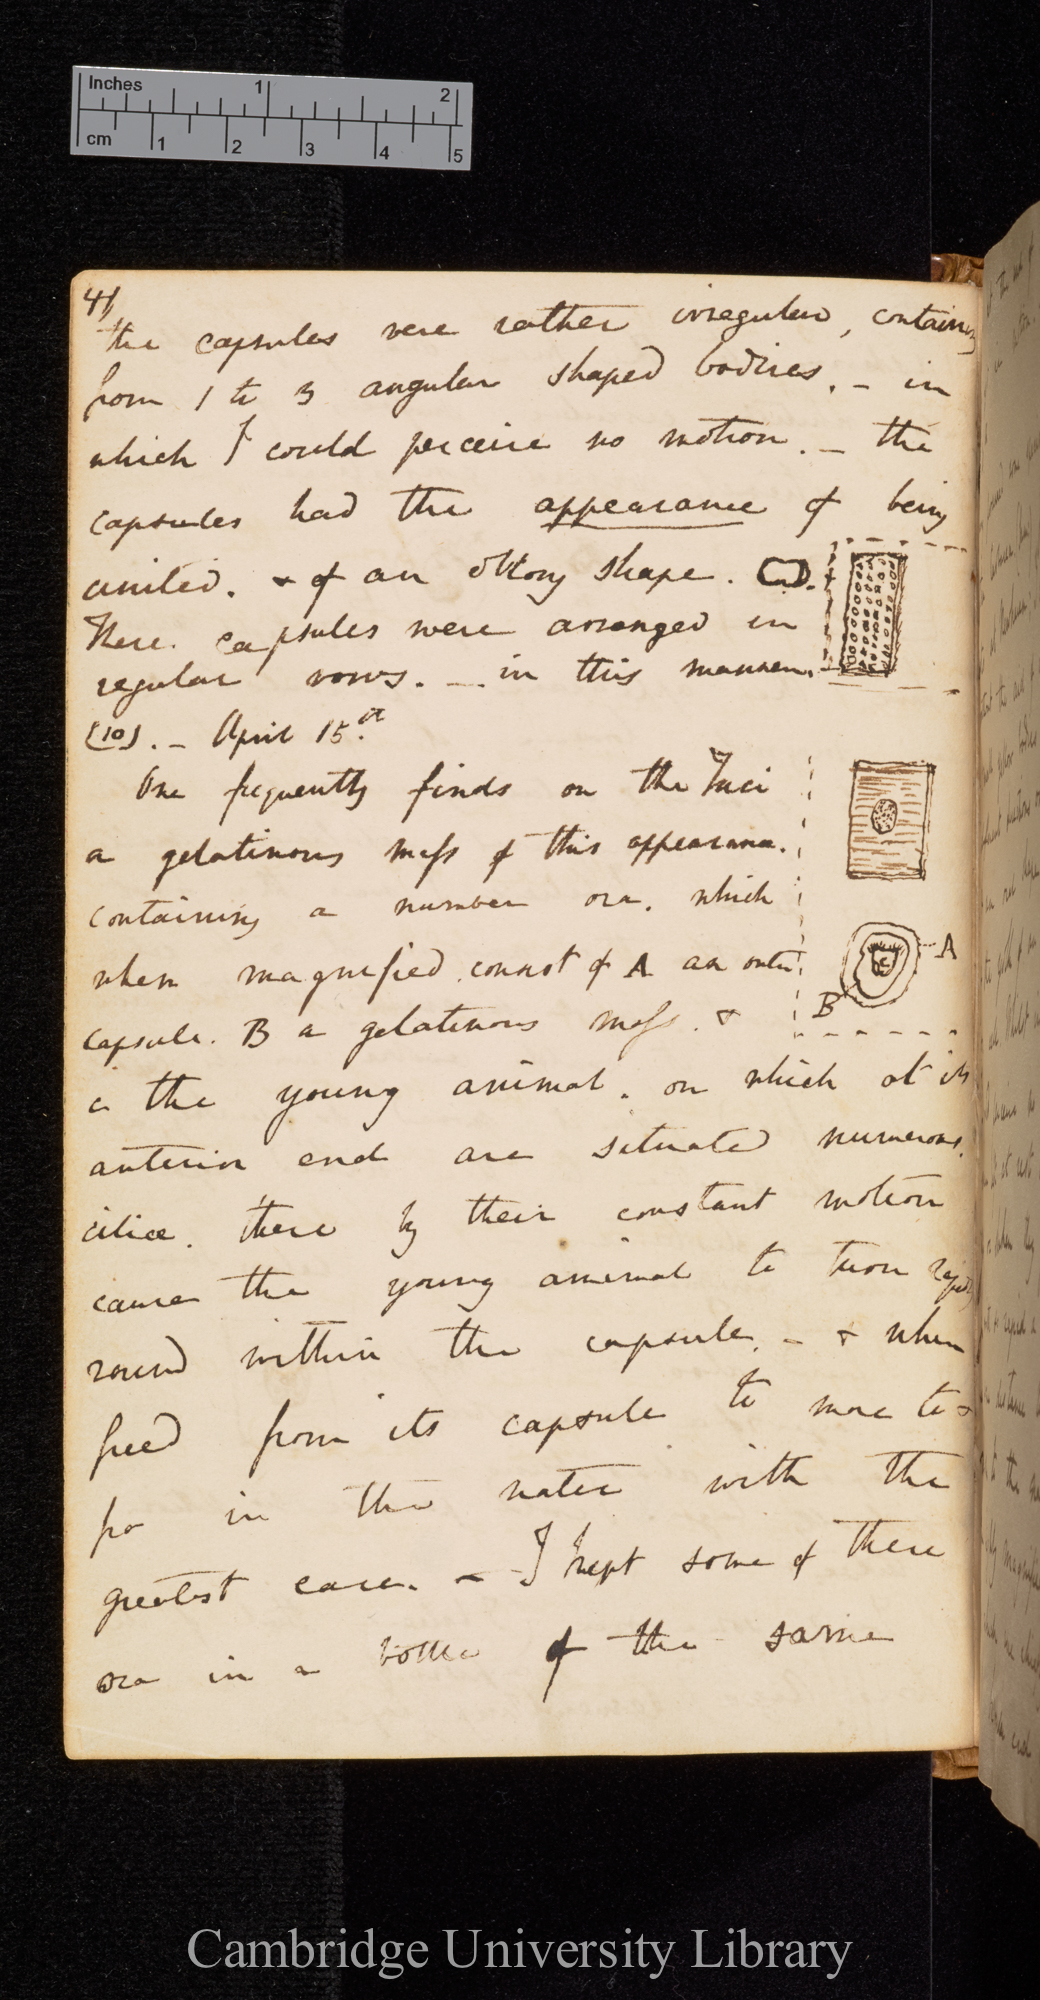 Inches 1 2
cm 1 2 3 4 5
41
the capsules were rather irregular, containing
from 1 to 3 angular shaped bodies. – in
which I could perceive no motion. – the
capsules had the appearance of being
united. & of an oblong shape.
These capsules were arranged in
regular rows. – in this manner.
(10). – April 15.st
One frequently finds on the Fuci
a gelatinous mass of this appearance.
containing a number ova. which
when magnified consist of A an outer
A
capsule. B a gelatinous mass. &
B
c the young animal. on which at its
anterior end are situated numerous
ciliae. these by their constant motion
cause the young animal to turn rapidly
round within the capsule. – & when
freed from its capsule to move to &
fro in the water with the
greatest ease. – I kept some of these
ova in a bottle of the same
Cambridge University Library